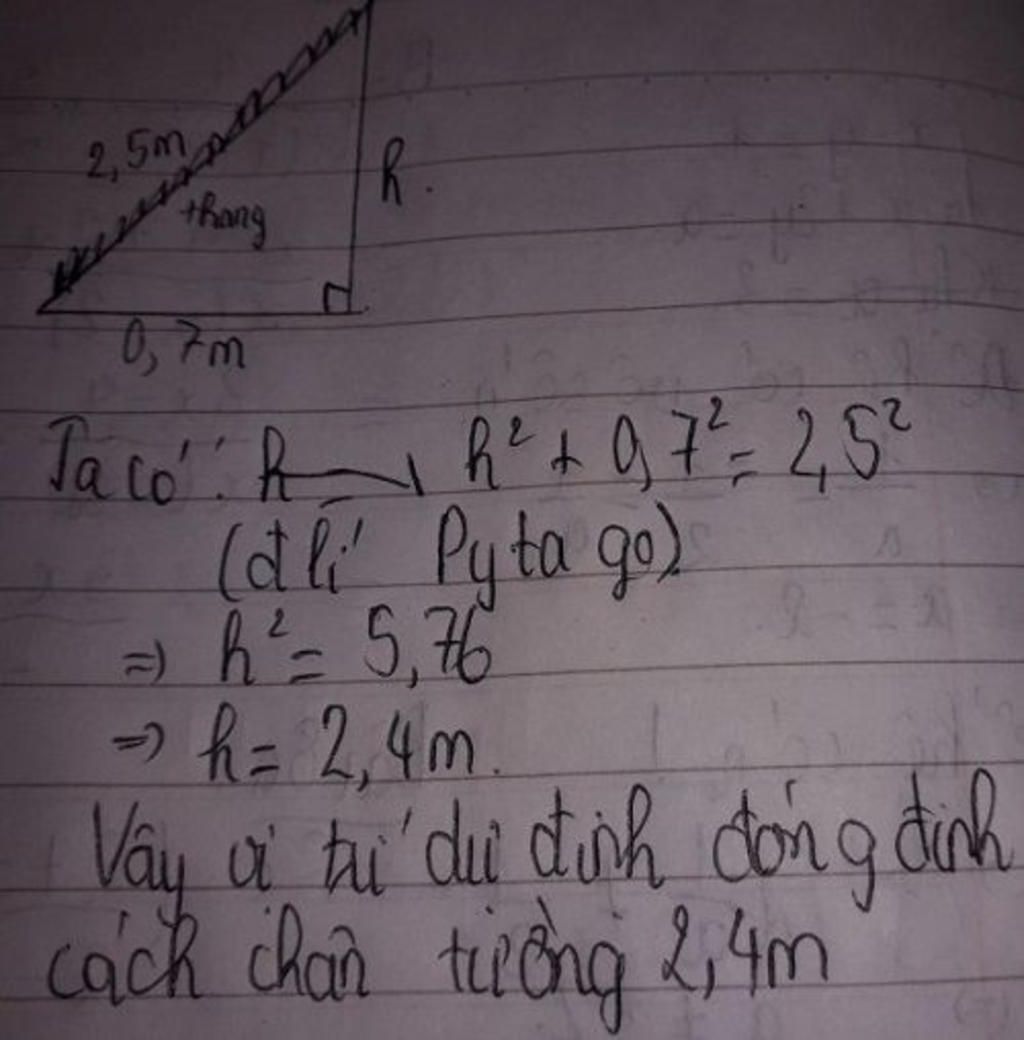 2,5m
h.
thang
0,7m
Ta có: h h² + 0,7² = 2,5²
(đ lí Pytago)
=> h² = 5,76
=> h = 2,4m.
Vậy vị trí dự định đóng đinh
cách chân tường 2,4m